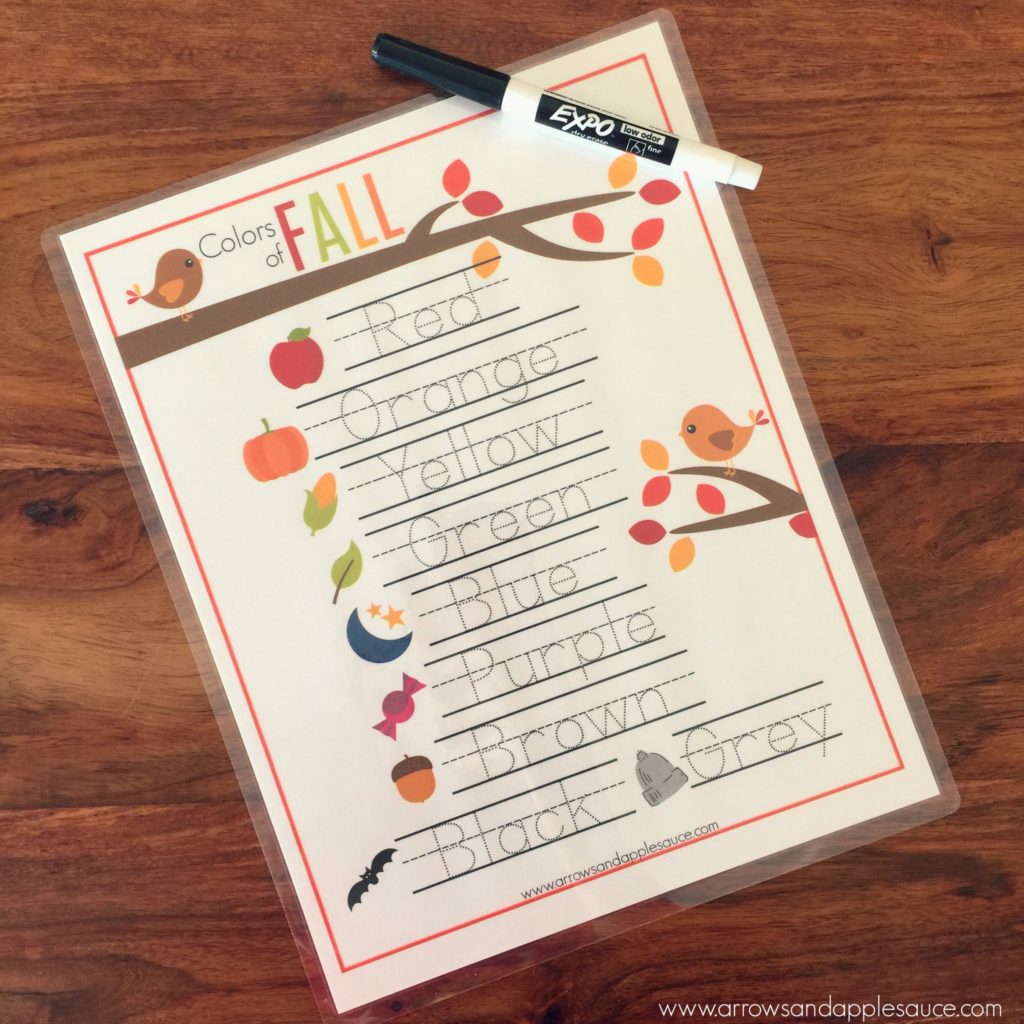 EXPO
low odor
dry erase
fine
Colors
of FALL
Red
Orange
Yellow
Green
Blue
Purple
Brown
Grey
Black
www.arrowsandapplesauce.com
www.arrowsandapplesauce.com